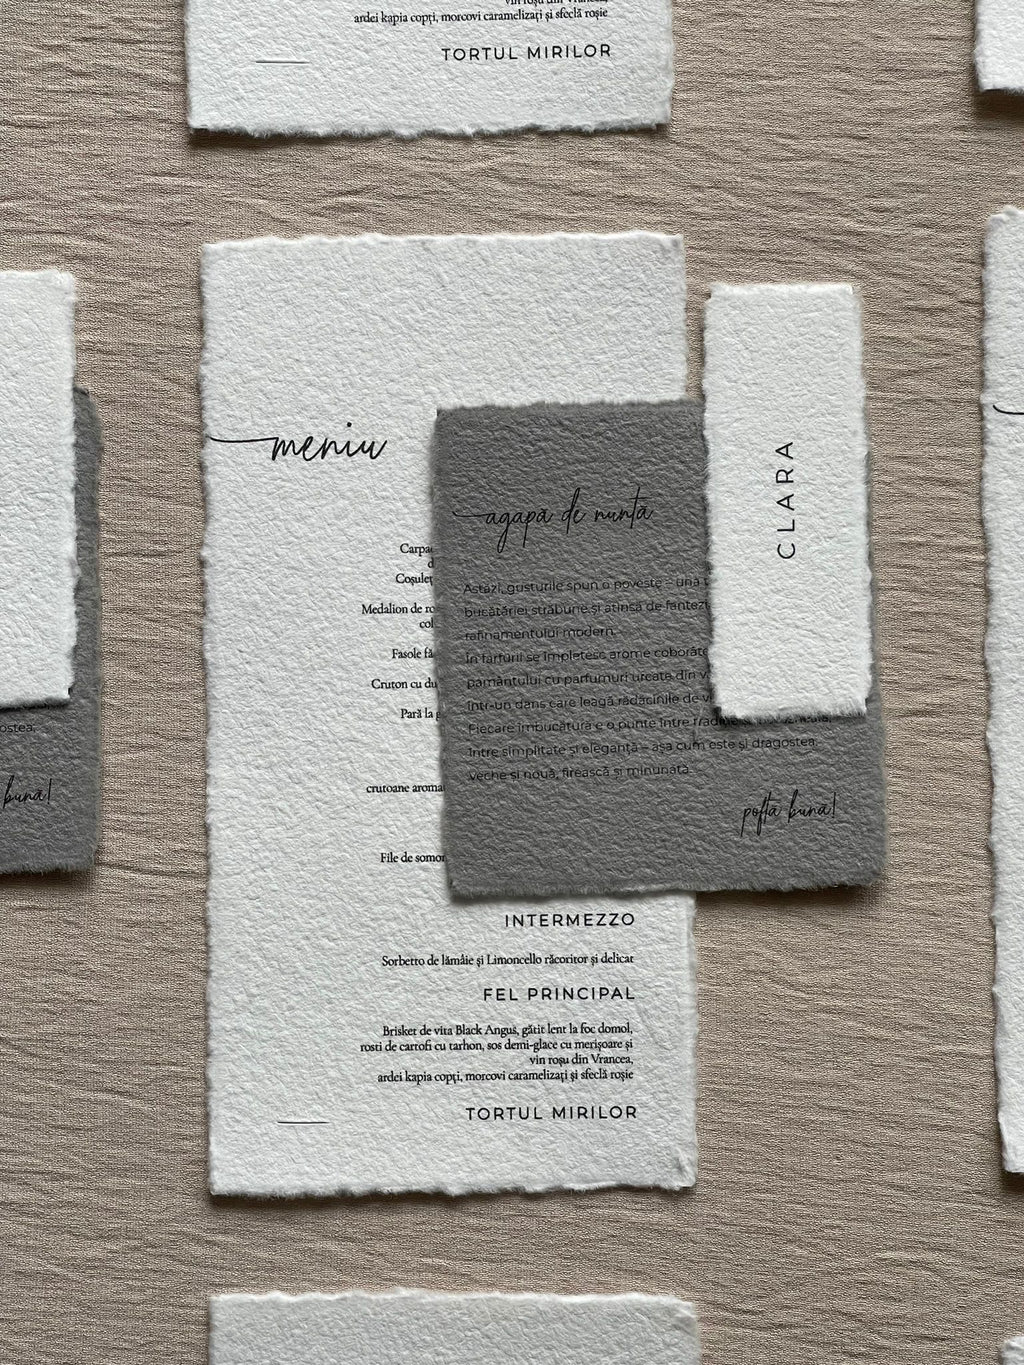 vin roșu din Vrancea,
ardei kapia copți, morcovi caramelizați și sfeclă roșie
TORTUL MIRILOR
meniu
Medalion de
Fasole
Cruton cu
Pară la
crutoane
File de
INTERMEZZO
Sorbetto de lămâie și Limoncello răcoritor și delicat
FEL PRINCIPAL
Brisket de vita Black Angus, gătit lent la foc domol,
rosti de cartofi cu tarhon, sos demi-glace cu merișoare și
vin roșu din Vrancea,
ardei kapia copți, morcovi caramelizați și sfeclă roșie
TORTUL MIRILOR
agapa de nuntă
Astăzi, gusturile spun o poveste – una
bucătăriei străbune și atinsă de
rafinamentului modern.
În farfurii se împletesc arome
pământului cu parfumuri urcate din
într-un dans care leagă rădăcinile de
Fiecare îmbucătură e o punte între
între simplitate și eleganță – așa cum este și dragostea:
veche și nouă, firească și minunată.
poftă bună!
CLARA
bună!